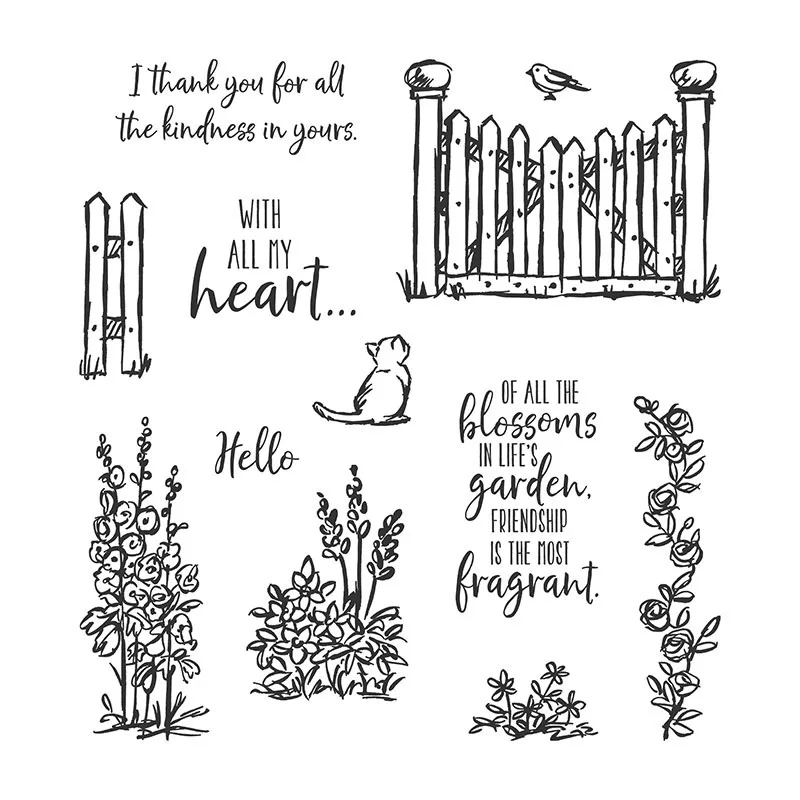 I thank you for all
the kindness in yours.
WITH
ALL MY
heart...
Hello
OF ALL THE
blossoms
IN LIFE'S
garden,
FRIENDSHIP
IS THE MOST
fragrant.